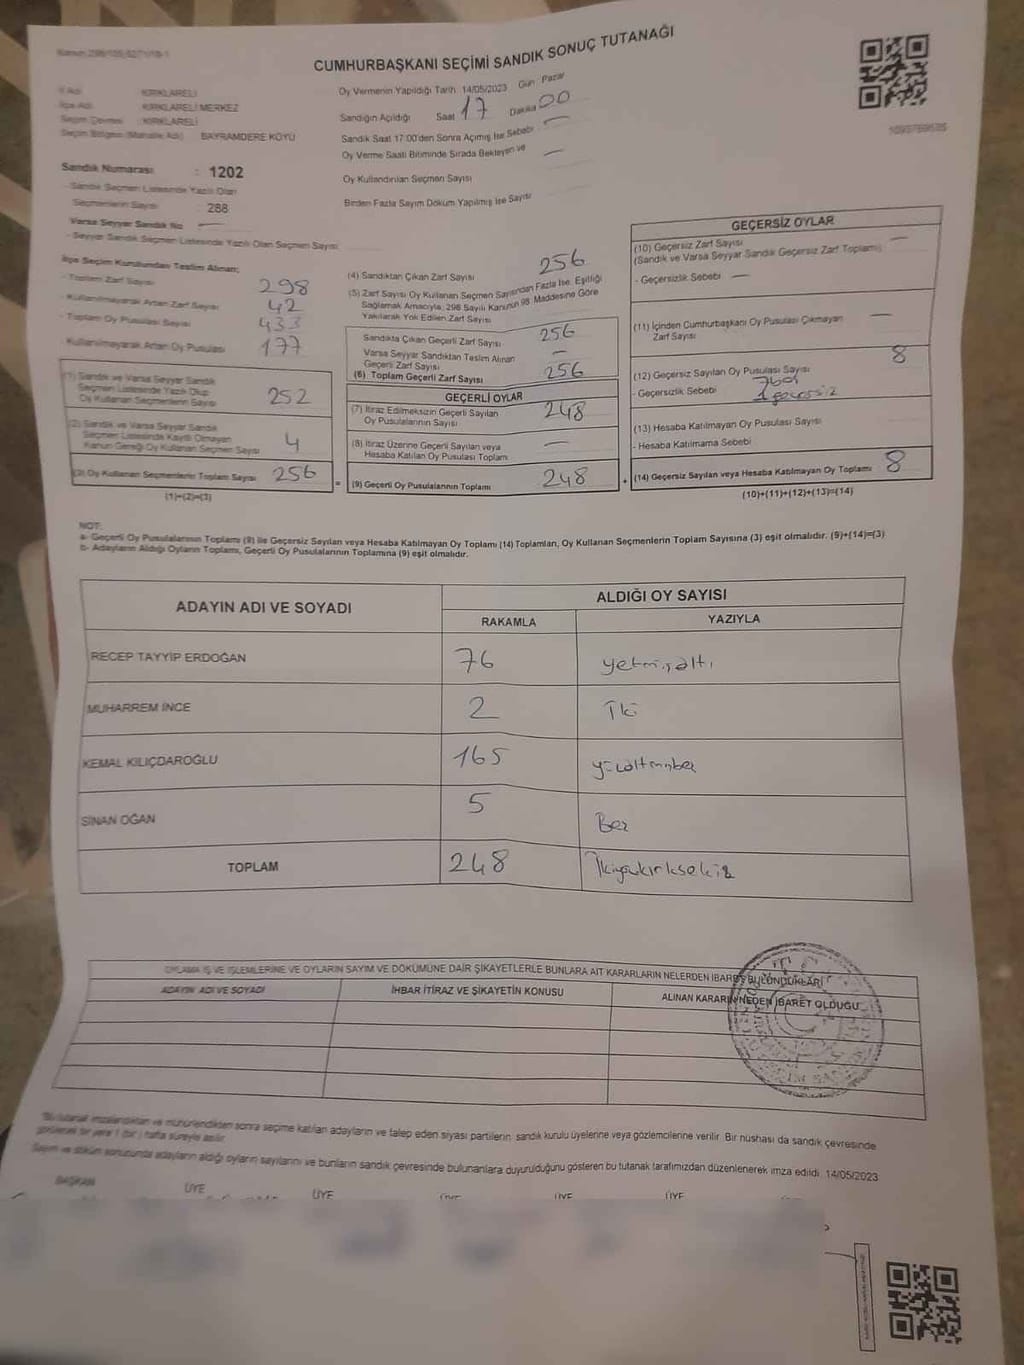 CUMHURBAŞKANI SEÇİMİ SANDIK SONUÇ TUTANAĞI
İl Adı : KIRKLARELİ
İlçe Adı : KIRKLARELİ MERKEZ
Seçim Çevresi : KIRKLARELİ
Seçim Bölgesi (Mahalle Adı) : BAYRAMDERE KÖYÜ
Sandık Numarası : 1202
- Sandık Seçmen Listesinde Yazılı Olan
Seçmenlerin Sayısı : 288
Varsa Seyyar Sandık No
- Seyyar Sandık Seçmen Listesinde Yazılı Olan Seçmen Sayısı:
Oy Vermenin Yapıldığı Tarih 14/05/2023 Gün Pazar
Sandığın Açıldığı Saat 17 Dakika 00
Sandık Saat 17:00'den Sonra Açımış İse Sebebi —
Oy Verme Saati Bitiminde Sırada Bekleyen ve —
Oy Kullandırılan Seçmen Sayısı
Birden Fazla Sayım Döküm Yapılmış İse Sayısı
İlçe Seçim Kurulundan Teslim Alınan;
- Toplam Zarf Sayısı 298
- Kullanılmayarak Artan Zarf Sayısı 42
- Toplam Oy Pusulası Sayısı 433
- Kullanılmayarak Artan Oy Pusulası 177
(1) Sandık ve Varsa Seyyar Sandık
Seçmen Listesinde Yazılı Olup
Oy Kullanan Seçmenlerin Sayısı 252
(2) Sandık ve Varsa Seyyar Sandık
Seçmen Listesinde Kayıtlı Olmayan
Kanun Gereği Oy Kullanan Seçmen Sayısı 4
(3) Oy Kullanan Seçmenlerin Toplam Sayısı 256
(1)+(2)=(3)
(4) Sandıktan Çıkan Zarf Sayısı 256
(5) Zarf Sayısı Oy Kullanan Seçmen Sayısından Fazla İse, Eşitliği
Sağlamak Amacıyla, 298 Sayılı Kanunun 98. Maddesine Göre
Yakılarak Yok Edilen Zarf Sayısı
Sandıkta Çıkan Geçerli Zarf Sayısı 256
Varsa Seyyar Sandıktan Teslim Alınan
Geçerli Zarf Sayısı —
(6) Toplam Geçerli Zarf Sayısı 256
GEÇERLİ OYLAR
(7) İtiraz Edilmeksizin Geçerli Sayılan
Oy Pusulalarının Sayısı 248
(8) İtiraz Üzerine Geçerli Sayılan veya
Hesaba Katılan Oy Pusulası Toplam —
(9) Geçerli Oy Pusulalarının Toplamı 248
GEÇERSİZ OYLAR
(10) Geçersiz Zarf Sayısı —
(Sandık ve Varsa Seyyar Sandık Geçersiz Zarf Toplamı)
- Geçersizlik Sebebi —
(11) İçinden Cumhurbaşkanı Oy Pusulası Çıkmayan
Zarf Sayısı —
(12) Geçersiz Sayılan Oy Pusulası Sayısı 8
- Geçersizlik Sebebi 7 boş
1 geçersiz
(13) Hesaba Katılmayan Oy Pusulası Sayısı
- Hesaba Katılmama Sebebi
(14) Geçersiz Sayılan veya Hesaba Katılmayan Oy Toplamı 8
(10)+(11)+(12)+(13)=(14)
NOT:
a- Geçerli Oy Pusulalarının Toplamı (9) ile Geçersiz Sayılan veya Hesaba Katılmayan Oy Toplamı (14) Toplamları, Oy Kullanan Seçmenlerin Toplam Sayısına (3) eşit olmalıdır. (9)+(14)=(3)
b- Adayların Aldığı Oyların Toplamı, Geçerli Oy Pusulalarının Toplamına (9) eşit olmalıdır.
ADAYIN ADI VE SOYADI ALDIĞI OY SAYISI
RAKAMLA YAZIYLA
RECEP TAYYİP ERDOĞAN 76 yetmişaltı
MUHARREM İNCE 2 İki
KEMAL KILIÇDAROĞLU 165 yüzaltmışbeş
SİNAN OĞAN 5 Beş
TOPLAM 248 İkiyüzkırksekiz
OYLAMA İŞ VE İŞLEMLERİNE VE OYLARIN SAYIM VE DÖKÜMÜNE DAİR ŞİKAYETLERLE BUNLARA AİT KARARLARIN NELERDEN İBARET BULUNDUKLARI
ADAYIN ADI VE SOYADI İHBAR İTİRAZ VE ŞİKAYETİN KONUSU ALINAN KARARIN NEDEN İBARET OLDUĞU
*Bu tutanak imzalandıktan ve mühürlendikten sonra seçime katılan adayların ve talep eden siyasi partilerin sandık kurulu üyelerine veya gözlemcilerine verilir. Bir nüshası da sandık çevresinde
görülecek bir yere 1 (bir) hafta süreyle asılır.
Sayım ve döküm sonucunda adayların aldığı oyların sayılarını ve bunların sandık çevresinde bulunanlara duyurulduğunu gösteren bu tutanak tarafımızdan düzenlenerek imza edildi. 14/05/2023
BAŞKAN ÜYE ÜYE ÜYE ÜYE ÜYE